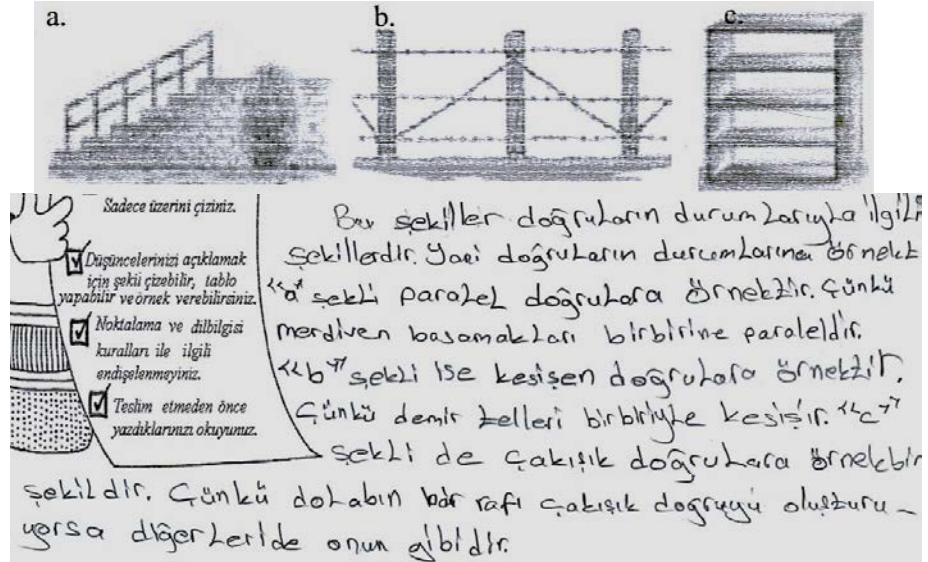 a.
b.
c.
Sadece üzerini çiziniz.
Düşüncelerinizi açıklamak
için şekil çizebilir, tablo
yapabilir ve örnek verebilirsiniz.
Noktalama ve dilbilgisi
kuralları ile ilgili
endişelenmeyiniz.
Teslim etmeden önce
yazdıklarınızı okuyunuz.
Bu şekiller doğruların durumlarıyla ilgili
şekillerdir. Yani doğruların durumlarına örnekt
"a" şekli paralel doğrulara örnektir. Çünkü
merdiven basamakları birbirine paraleldir.
"b" şekli ise kesişen doğrulara örnektir.
Çünkü demir telleri birbiriyle kesişir. "c"
şekli de çakışık doğrulara örnekbir
şekildir. Çünkü dolabın bir rafı çakışık doğruyu oluşturu-
yorsa diğerleride onun gibidir.